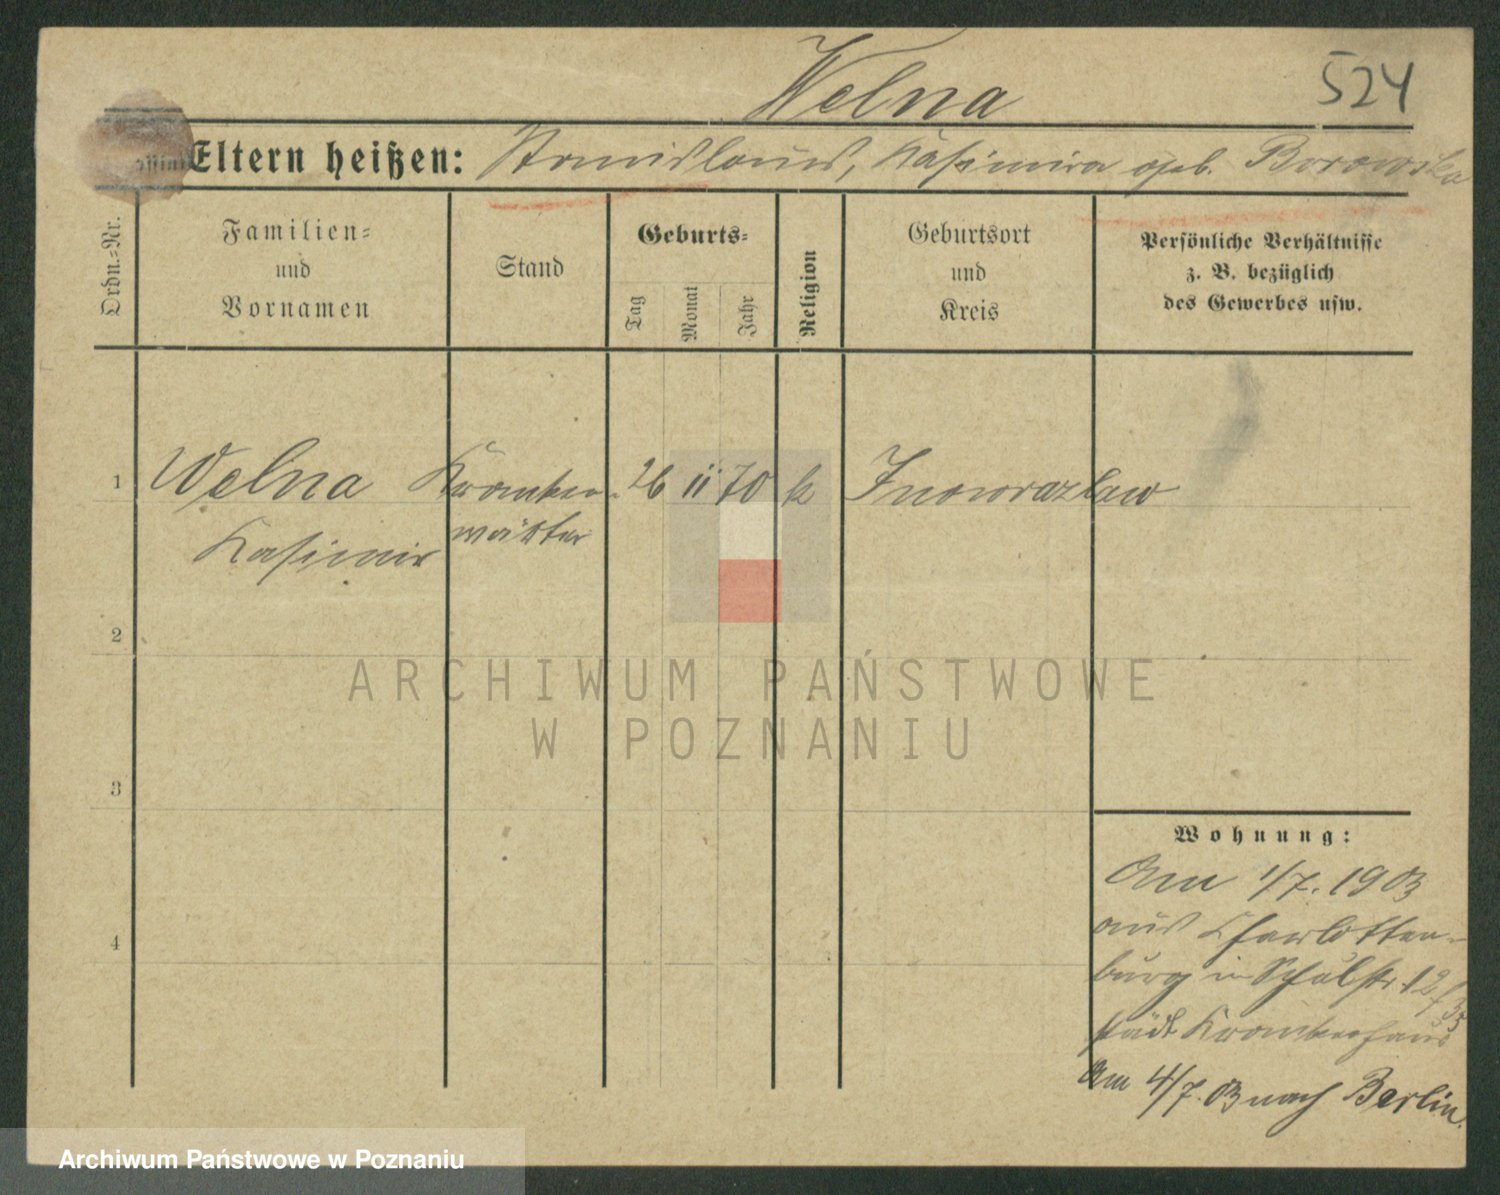 Welna
524
Eltern heißen: Stanislaus, Kasimira geb. Borowska
Ordn.-Nr.
Familien-
und
Vornamen
Stand
Geburts-
Tag
Monat
Jahr
Religion
Geburtsort
und
Kreis
Persönliche Verhältnisse
z. B. bezüglich
des Gewerbes usw.
1 Welna Kranken- 26 11 70 k Inowrazlaw
Kasimir wärter
2
ARCHIWUM PAŃSTWOWE
W POZNANIU
3
Wohnung:
Am 1/7. 1903
aus Charlotten-
burg in Schulstr. 12/
städt Krankenhaus
Am 4/7. 03 nach Berlin.
4
Archiwum Państwowe w Poznaniu